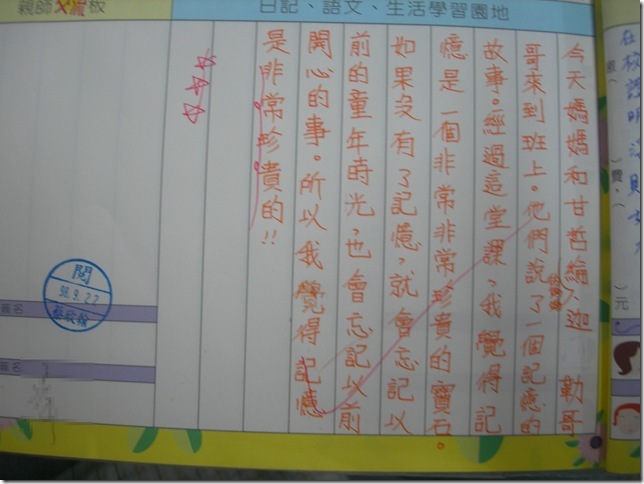 親師交流板
日記、語文、生活學習園地
今天媽媽和甘哲綸、迦勒哥
哥來到班上。他們說了一個記憶的
故事。經過這堂課，我覺得記
憶是一個非常非常珍貴的寶石。
如果沒有了記憶，就會忘記以
前的童年時光，也會忘記以前
開心的事。所以我覺得記憶
是非常珍貴的！！
閱
98.9.22
簽名
簽名
費
元